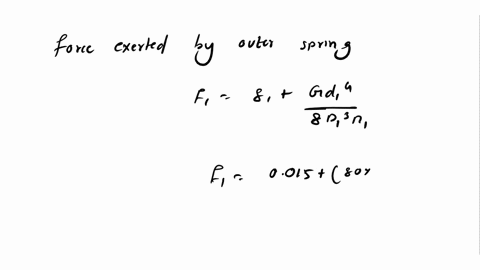 force exerted by outer spring
F₁ = 8₁ + Gd₁⁴ / 8D₁³n₁
F₁ = 0.015 + (80x